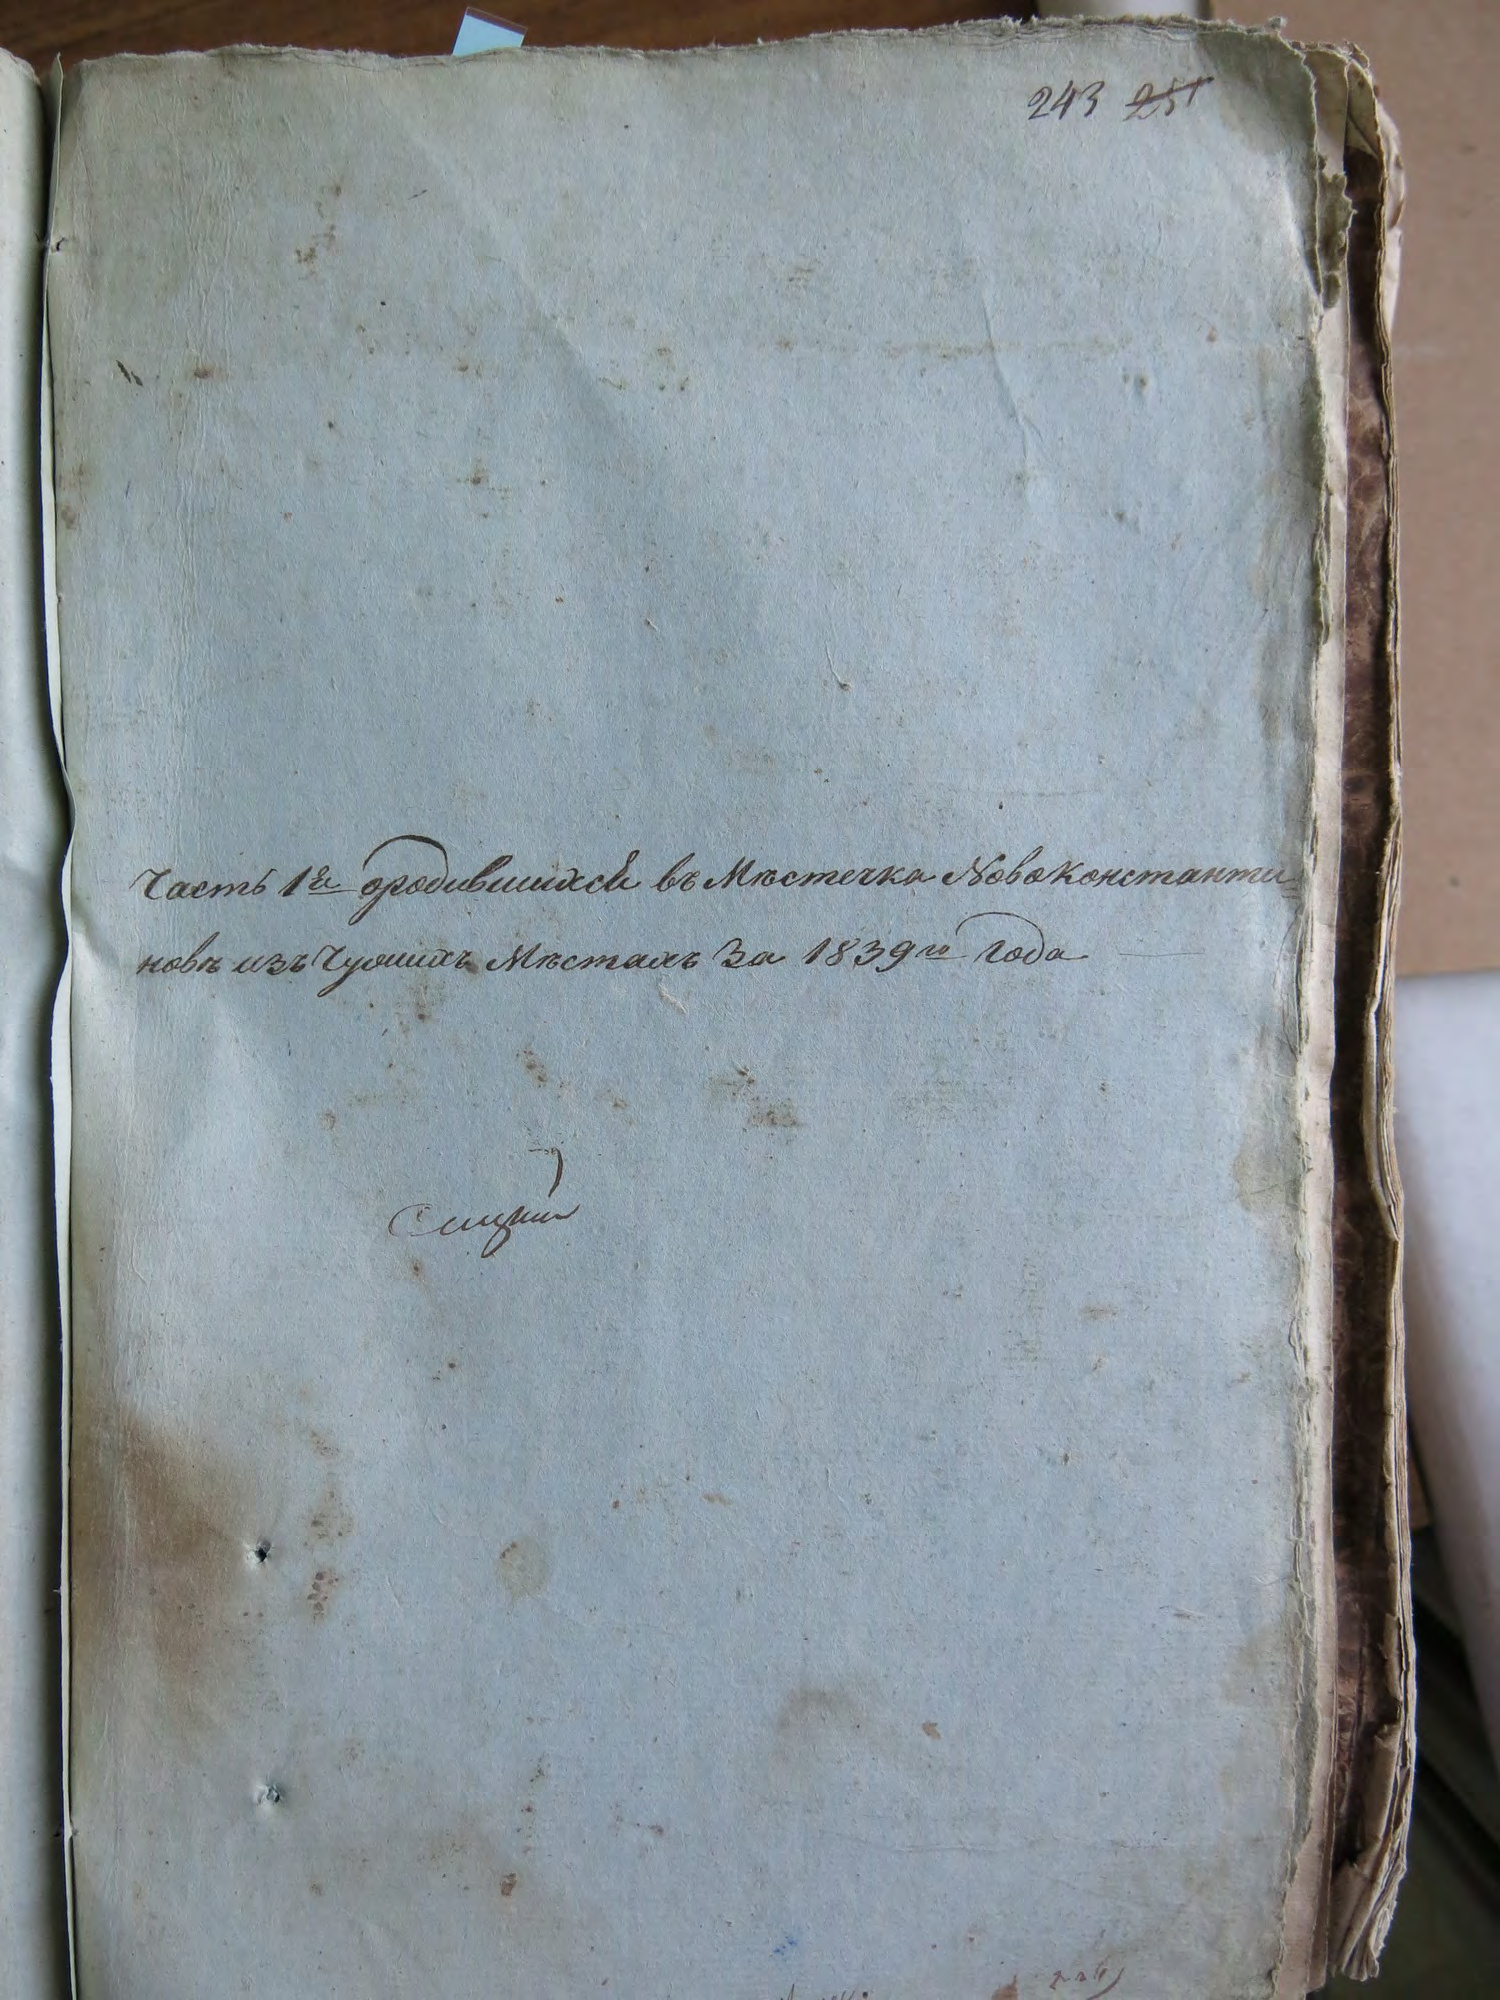 243 251
Часть 1я ородившихся въ Мѣстечка Новоконстанти=
новѣ изъ Чужихъ Мѣстахъ За 1839й Года